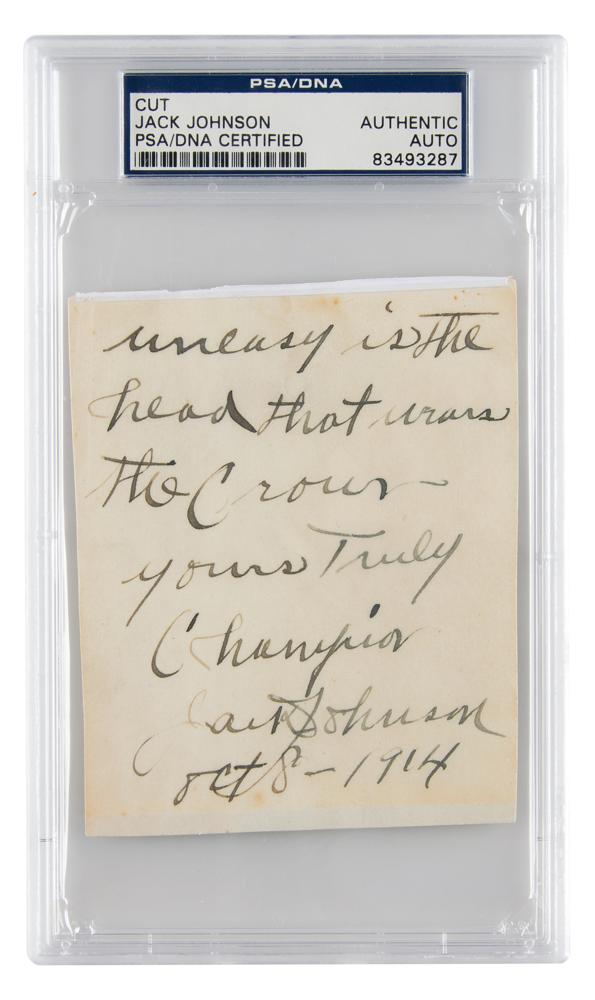 PSA/DNA
CUT
JACK JOHNSON AUTHENTIC
PSA/DNA CERTIFIED AUTO
83493287
uneasy is the
head that wears
the Crown
yours Truly
Champion
Jack Johnson
oct 8 - 1914